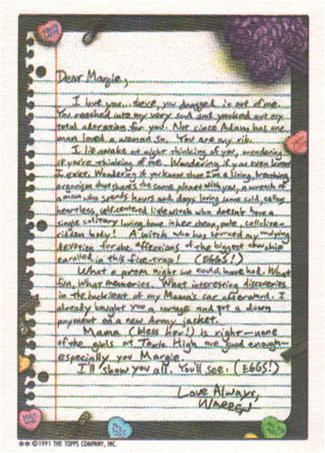 Dear Margie,
I love you... there, you dragged it out of me.
You reached into my very soul and yanked out my
total adoration for you. Not since Adam has one
man loved a woman so. You are my rib.
I lie awake at night thinking of you, wondering
if you're thinking of me. Wondering if you even know
I exist. Wondering if you know that I'm a living, breathing
organism that shares the same planet with you, a wretch of
a man who spends hours and days loving some cold, callous
heartless, self-centered little witch who doesn't have a
single solitary loving bone in her cheap, pale, cellulite-
ridden body! A witch who has spurned my undying
devotion for the affections of the biggest chowchip
enrolled in this fire-trap! (EGGS!)
What a prom night we could have had. What
fun, what memories. What interesting discoveries
in the backseat of my Mama's car afterward. I
already bought you a corsage and put a down
payment on a new Army jacket.
Mama (bless her!) is right—none
of the girls at Toxic High are good enough—
especially you Margie.
I'll show you all. You'll see. (EGGS!)
Love Always,
WARREN
** ©1991 THE TOPPS COMPANY, INC.